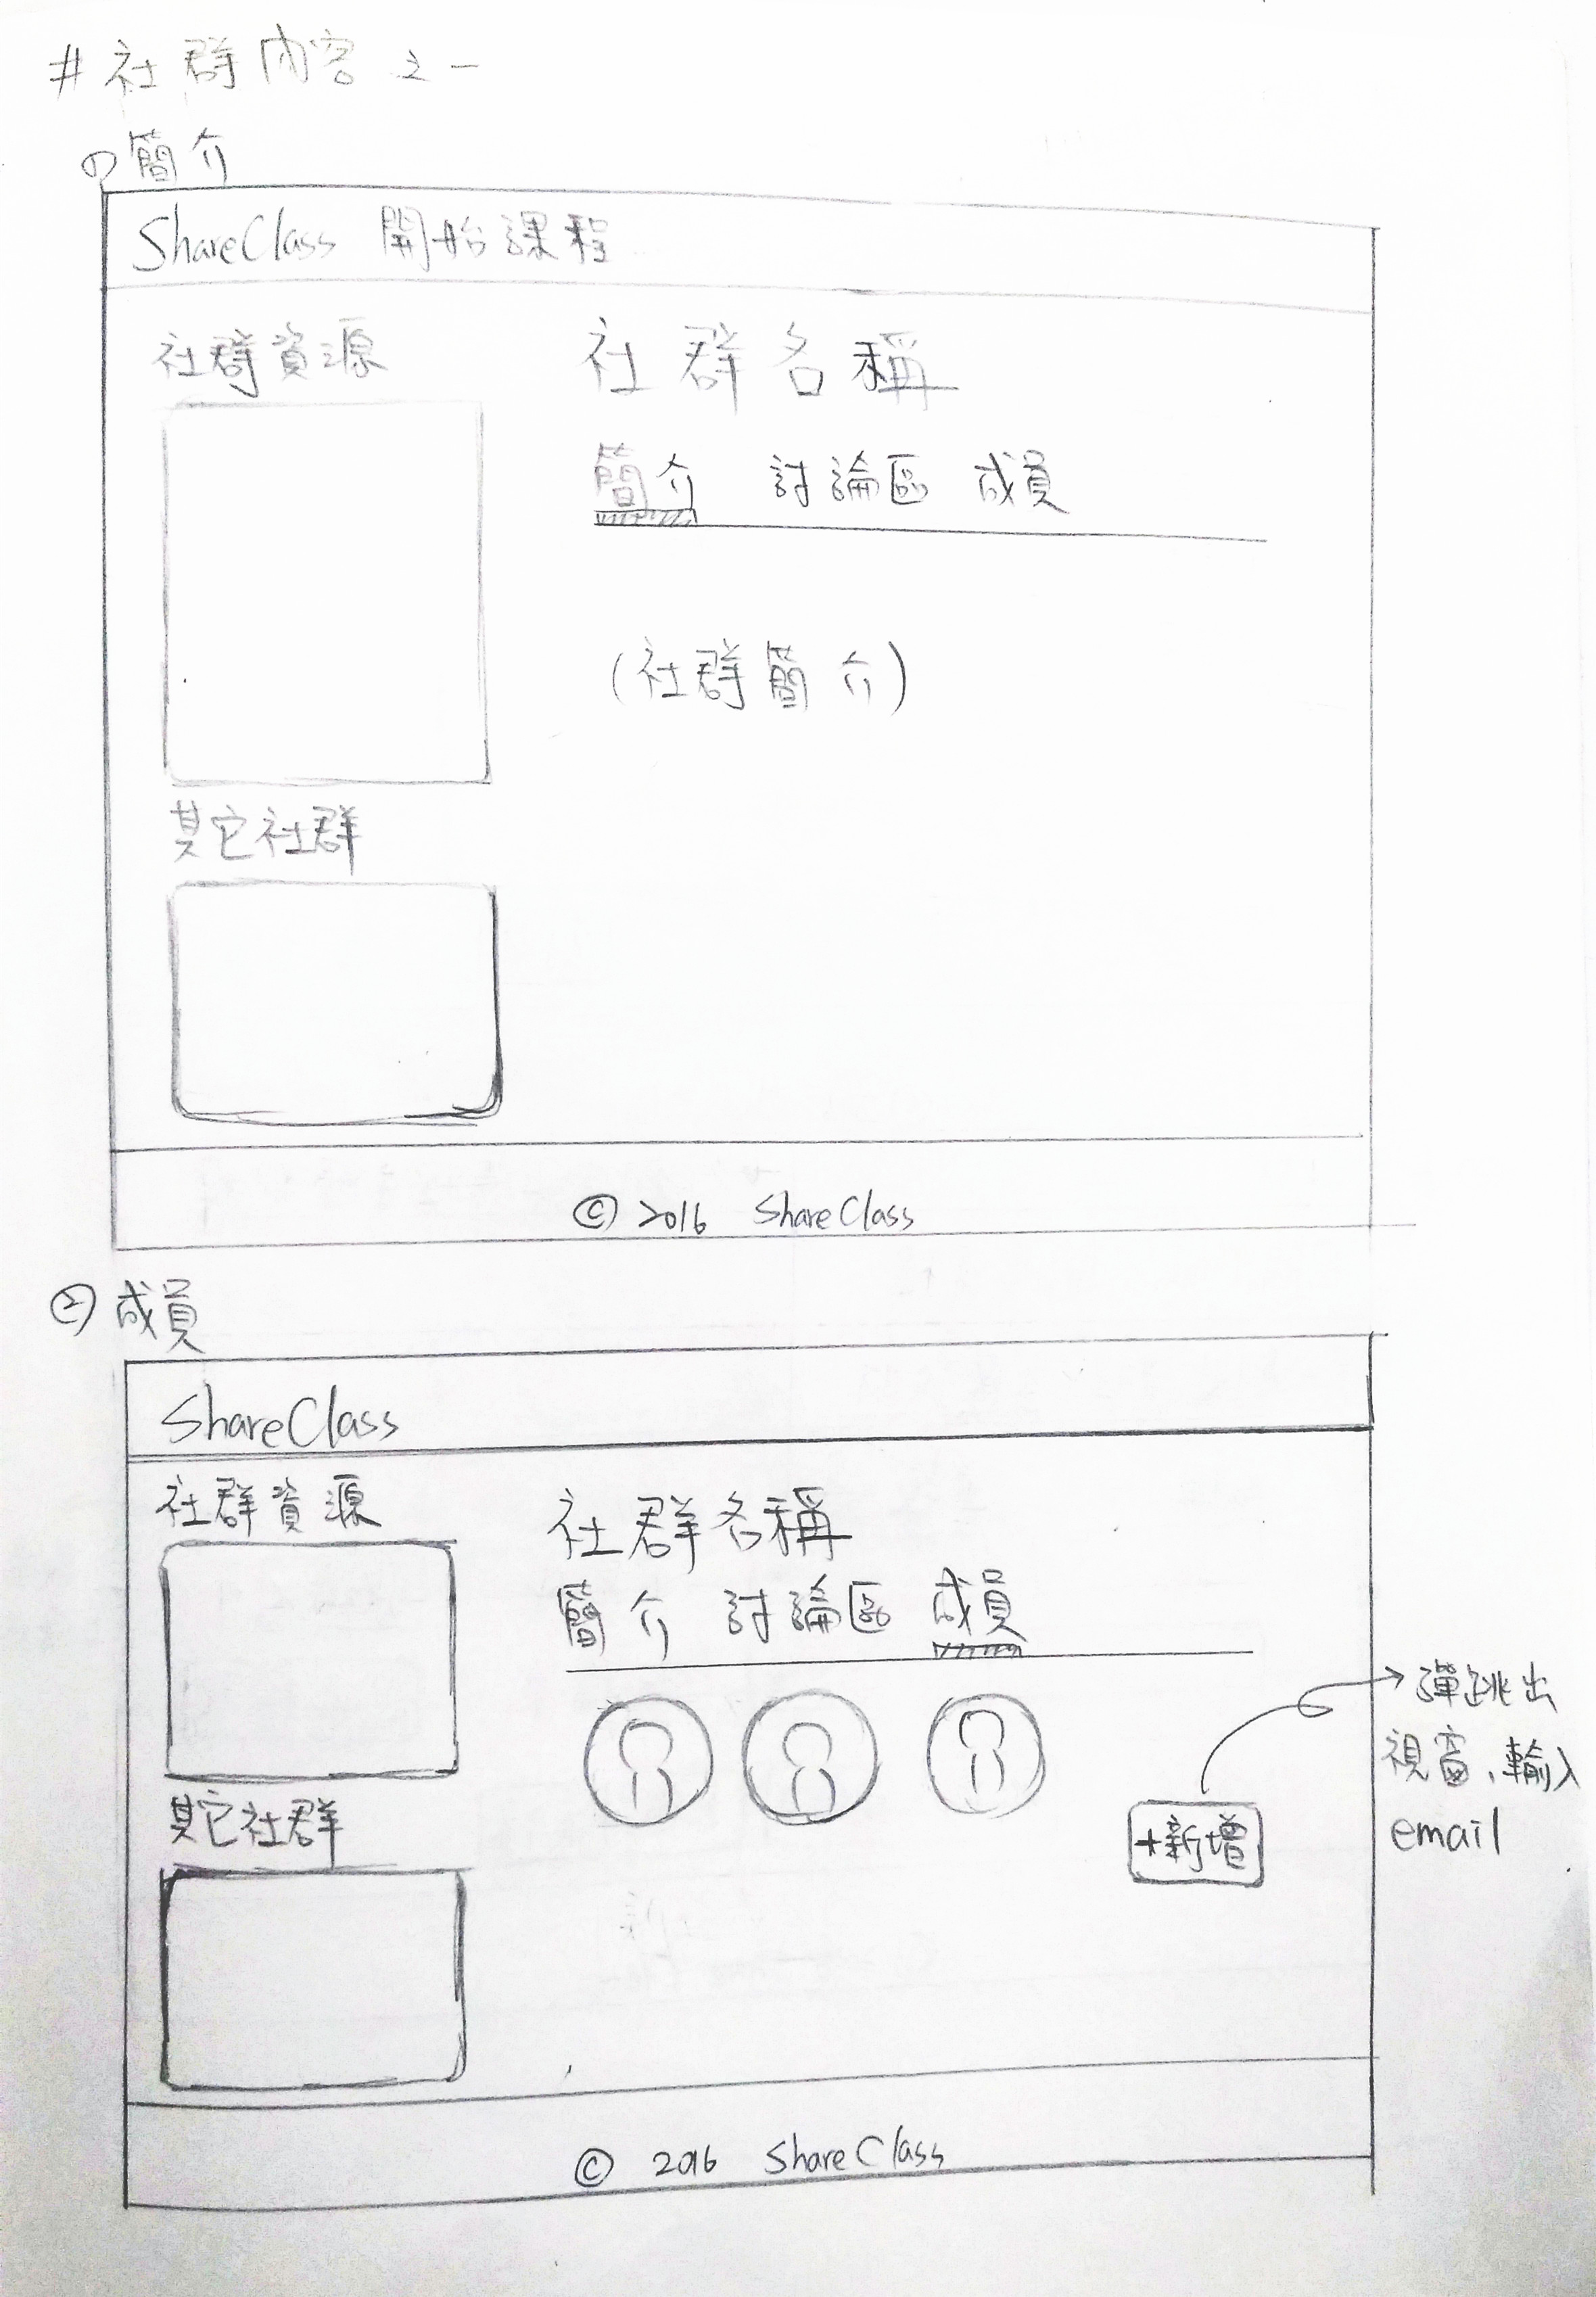 # 社群內容之一
① 簡介
ShareClass 開始課程
社群資源
社群名稱
簡介 討論區 成員
(社群簡介)
其它社群
© 2016 ShareClass
② 成員
ShareClass
社群資源
社群名稱
簡介 討論區 成員
其它社群
+新增
彈跳出
視窗,輸入
email
© 2016 ShareClass